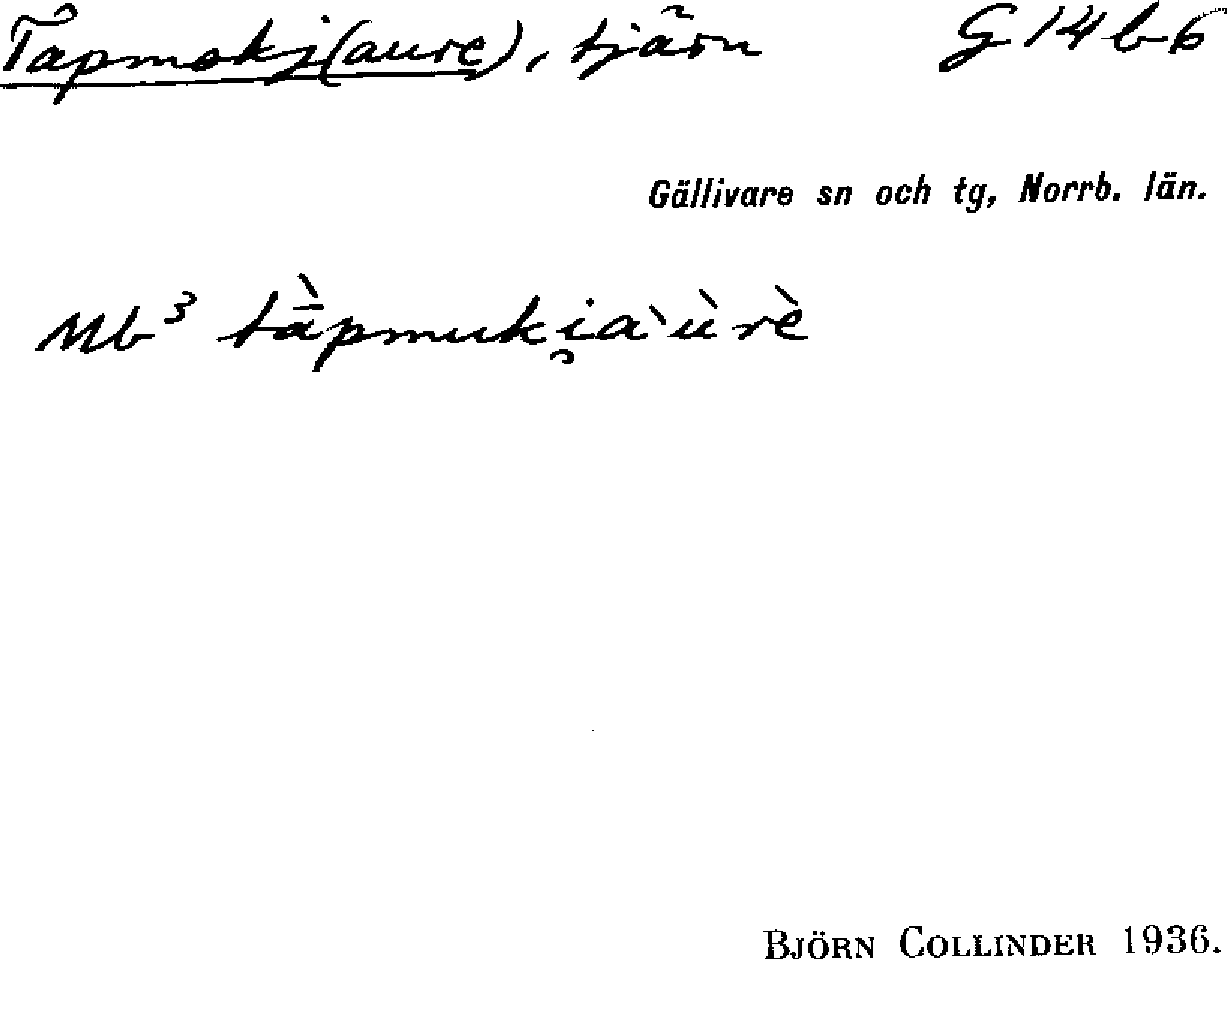 Tåpmokj(aure), tjärn G14b6
Gällivare sn och tg, Norrb. län.
Mb³ tā̀pmuki̯a`ùrè
BJÖRN COLLINDER 1936.